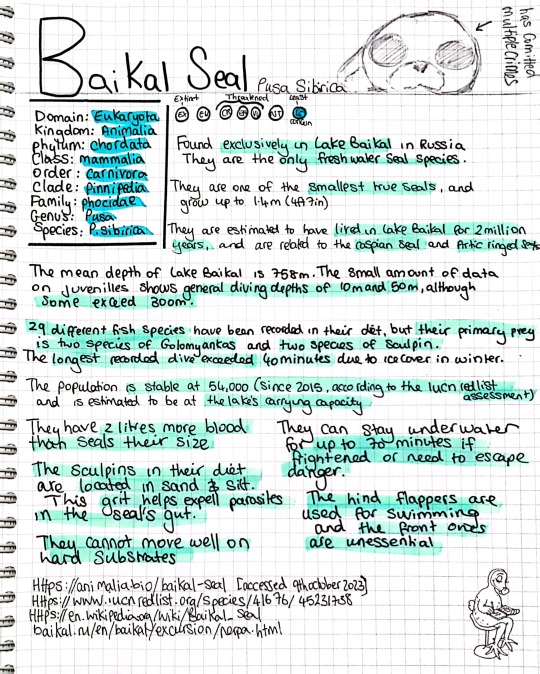 Baikal Seal Pusa Sibirica
has Comitted
multiple crimes
Domain: Eukaryota
Kingdom: Animalia
phylum: chordata
Class: mammalia
order: carnivora
Clade: Pinnipedia
Family: phocidae
Genus: Pusa
Species: P.sibirica
Extinct Threatened Least
EX EW CR EN VU NT LC
concern
Found exclusively in Lake Baikal in Russia
They are the only freshwater seal species.
They are one of the smallest true seals, and
grow up to 1.4m (4ft7in)
They are estimated to have lived in Lake Baikal for 2 million
years, and are related to the caspian seal and Artic ringed seals
The mean depth of Lake Baikal is 758m. The small amount of data
on juvenilles shows general diving depths of 10m and 50m, although
some exceed 300m.
29 different fish species have been recorded in their diet, but their primary prey
is two species of Golomyankas and two species of Sculpin.
The longest recorded dive exceeded 40minutes due to ice cover in winter.
The population is stable at 54,000 (since 2015, according to the iucn redlist
assessment)
and is estimated to be at the lake's carrying capacity
They have 2 litres more blood
than seals their size
The sculpins in their diet
are located in sand & silt.
This grit helps expell parasites
in the seal's gut.
They cannot move well on
hard substrates
They can stay underwater
for up to 70 minutes if
frightened or need to escape
danger.
The hind flappers are
used for swimming
and the front ones
are unessential
Https://animalia.bio/baikal-seal [accessed 9th october 2023]
Https://www.iucnredlist.org/species/41676/45231738
Https://en.wikipedia.org/wiki/Baikal_seal
baikal.ru/en/baikal/excursion/nerpa.html